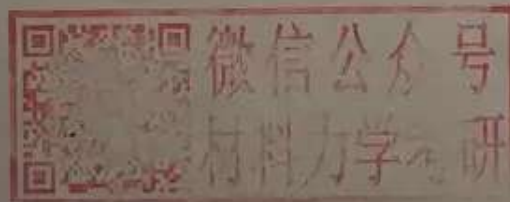 微信公众号
材料力学考研